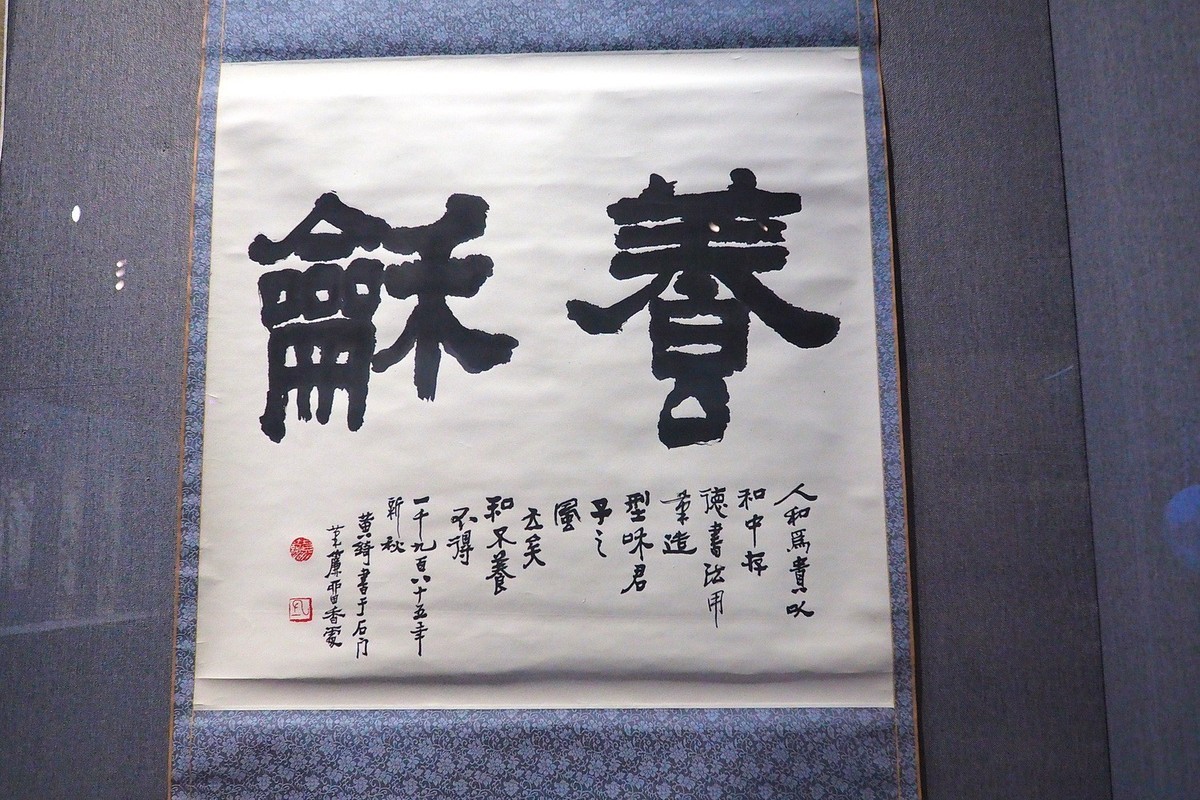 養龢
人和為貴以
和中存
德書法用
筆造
型味君
子之
風
云矣
和不養
不得
一千九百八十五年
新秋
黃綺書于石门